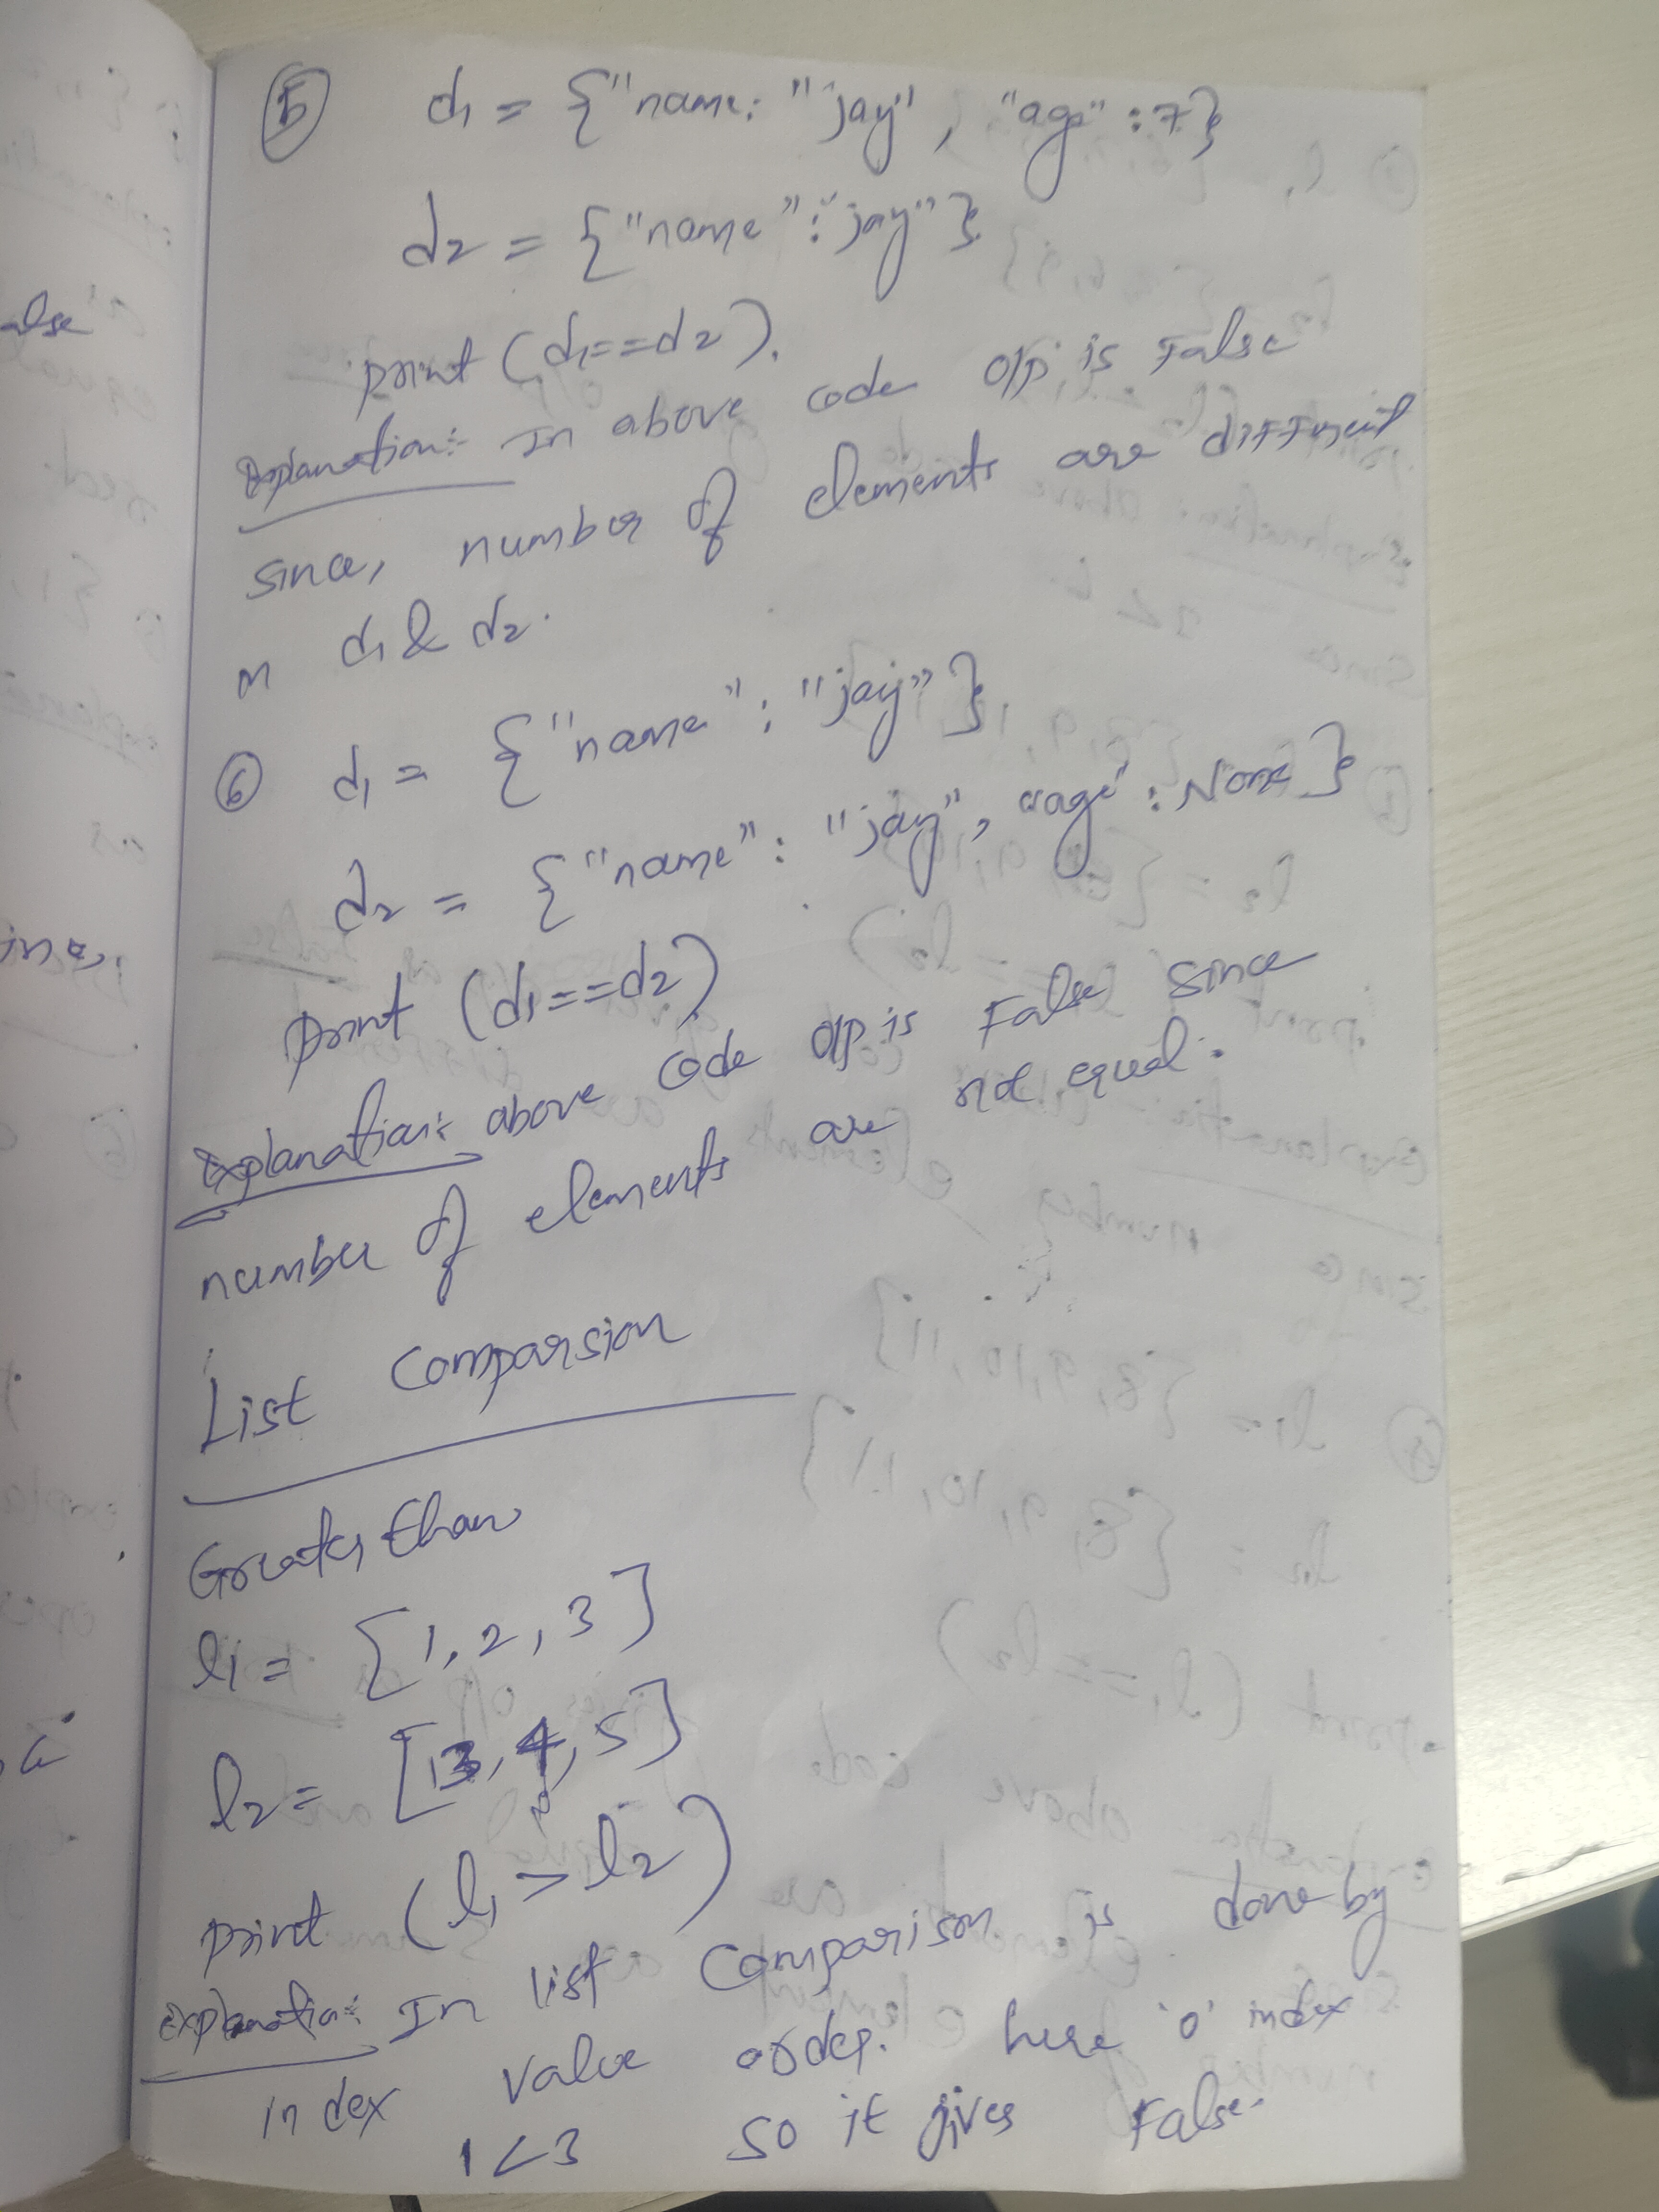 ⑤ d1 = {"name: "jay", "age" : 7}
d2 = {"name" : "jay"}
print (d1==d2).
Explanation:- In above code o/p is False
since, number of elements are different
in d1 & d2.
⑥ d1 = {"name" : "jay"}
d2 = {"name" : "jay", "age" : None}
print (d1==d2)
Explanation:- above code o/p is False since
number of elements are not equal.
List Comparsion
Greater than
l1 = [1, 2, 3]
l2 = [3, 4, 5]
print (l1 > l2)
explanation:- In list comparison is done by
index value order. here '0' index
1<3 so it gives False.
alse